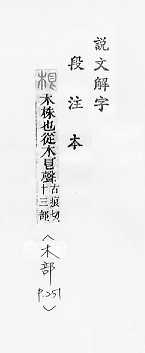 說文解字
段注本
根 木株也從木艮聲 古痕切十三部 〈木部 P.251〉